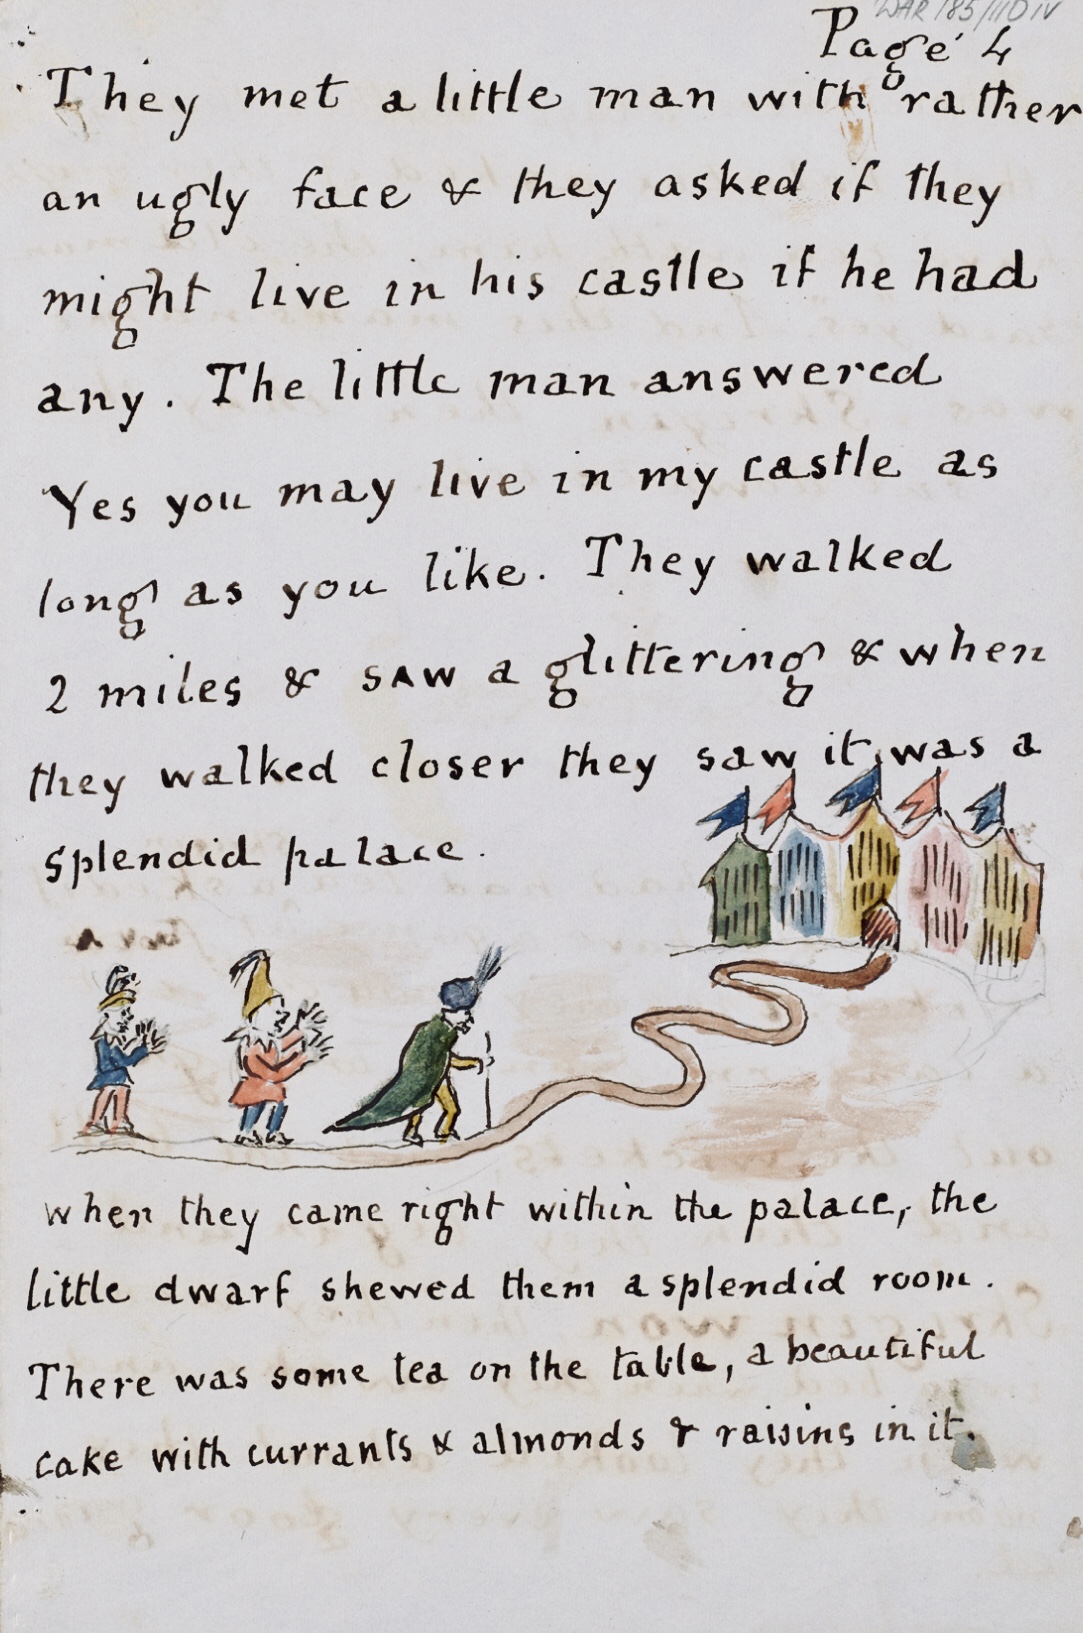 WAR/85/110 iv
Page 4
They met a little man with rather
an ugly face & they asked if they
might live in his castle if he had
any. The little man answered
Yes you may live in my castle as
long as you like. They walked
2 miles & saw a glittering & when
they walked closer they saw it was a
splendid palace.
when they came right within the palace, the
little dwarf shewed them a splendid room.
There was some tea on the table, a beautiful
cake with currants & almonds & raisins in it.